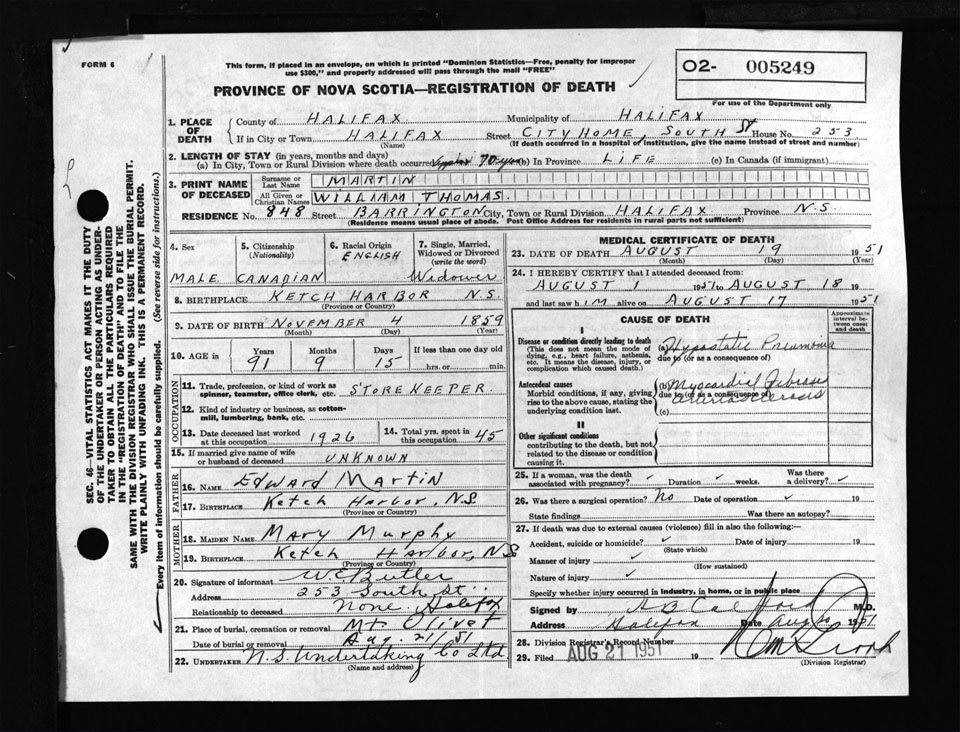 FORM 6
This form, if placed in an envelope, on which is printed "Dominion Statistics—Free, penalty for improper
use $300," and properly addressed will pass through the mail "FREE"
O2- 005249
For use of the Department only
PROVINCE OF NOVA SCOTIA—REGISTRATION OF DEATH
1. PLACE OF DEATH
County of HALIFAX Municipality of HALIFAX
If in City or Town HALIFAX Street CITY HOME, SOUTH St House No. 253
(Name) (If death occurred in a hospital or institution, give the name instead of street and number)
2. LENGTH OF STAY (in years, months and days)
(a) In City, Town or Rural Division where death occurred 70 years (b) In Province LIFE (c) In Canada (if immigrant)
3. PRINT NAME OF DECEASED
Surname or Last Name MARTIN
All Given or Christian Names WILLIAM THOMAS.
RESIDENCE No. 848 Street BARRINGTON City, Town or Rural Division HALIFAX Province N.S.
(Residence means usual place of abode. Post Office Address for residents in rural parts not sufficient)
4. Sex
MALE
5. Citizenship
(Nationality)
CANADIAN
6. Racial Origin
ENGLISH
7. Single, Married,
Widowed or Divorced
(write the word)
Widower
8. BIRTHPLACE KETCH HARBOR N.S.
(Province or Country)
9. DATE OF BIRTH NOVEMBER 4 1859
(Month) (Day) (Year)
10. AGE in Years Months Days If less than one day old
91 9 15 hrs. or min.
OCCUPATION
11. Trade, profession, or kind of work as
spinner, teamster, office clerk, etc. STORE KEEPER.
12. Kind of industry or business, as cotton-
mill, lumbering, bank, etc.
13. Date deceased last worked
at this occupation 1926
14. Total yrs. spent in
this occupation 45
15. If married give name of wife
or husband of deceased UNKNOWN
FATHER
16. Name Edward Martin
17. Birthplace Ketch Harbor, N.S.
(Province or Country)
MOTHER
18. MAIDEN NAME Mary Murphy
19. BIRTHPLACE Ketch Harbor, N.S
(Province or Country)
20. Signature of informant W.E. Butler
Address 253 South St.
Relationship to deceased None. Halifax
21. Place of burial, cremation or removal Mt. Olivet
Date of burial or removal Aug. 21/51
22. UNDERTAKER N.S. Undertaking Co Ltd
(Name and address)
MEDICAL CERTIFICATE OF DEATH
23. DATE OF DEATH AUGUST 19 1951
(Month) (Day) (Year)
24. I HEREBY CERTIFY that I attended deceased from
AUGUST 1 1951 to AUGUST 18 1951
and last saw him alive on AUGUST 17 1951
CAUSE OF DEATH
Approximate
interval be-
tween onset
and death
I
Disease or condition directly leading to death
(This does not mean the mode of
dying, e.g., heart failure, asthenia,
etc. It means the disease, injury, or
complication which caused death.)
(a) Hypostatic Pneumonia
due to (or as a consequence of)
Antecedent causes
Morbid conditions, if any, giving
rise to the above cause, stating the
underlying condition last.
(b) Myocardial Fibrosis
due to (or as a consequence of)
(c) arteriosclerosis
II
Other significant conditions
contributing to the death, but not
related to the disease or condition
causing it.
25. If a woman, was the death
associated with pregnancy? Duration weeks. Was there
a delivery?
26. Was there a surgical operation? No Date of operation 19
State findings Was there an autopsy?
27. If death was due to external causes (violence) fill in also the following:—
Accident, suicide or homicide? Date of injury 19
(State which)
Manner of injury
(How sustained)
Nature of injury
Specify whether injury occurred in industry, in home, or in public place
Signed by M.D.
Address Halifax Date Aug 20 1951
28. Division Registrar's Record Number
29. Filed AUG 21 1951 19
(Division Registrar)
SEC. 46—VITAL STATISTICS ACT MAKES IT THE DUTY
OF THE UNDERTAKER OR PERSON ACTING AS UNDER-
TAKER TO OBTAIN ALL THE PARTICULARS REQUIRED
IN THE "REGISTRATION OF DEATH" AND TO FILE THE
SAME WITH THE DIVISION REGISTRAR WHO SHALL ISSUE THE BURIAL PERMIT.
WRITE PLAINLY WITH UNFADING INK. THIS IS A PERMANENT RECORD.
Every item of information should be carefully supplied. (See reverse side for instructions.)